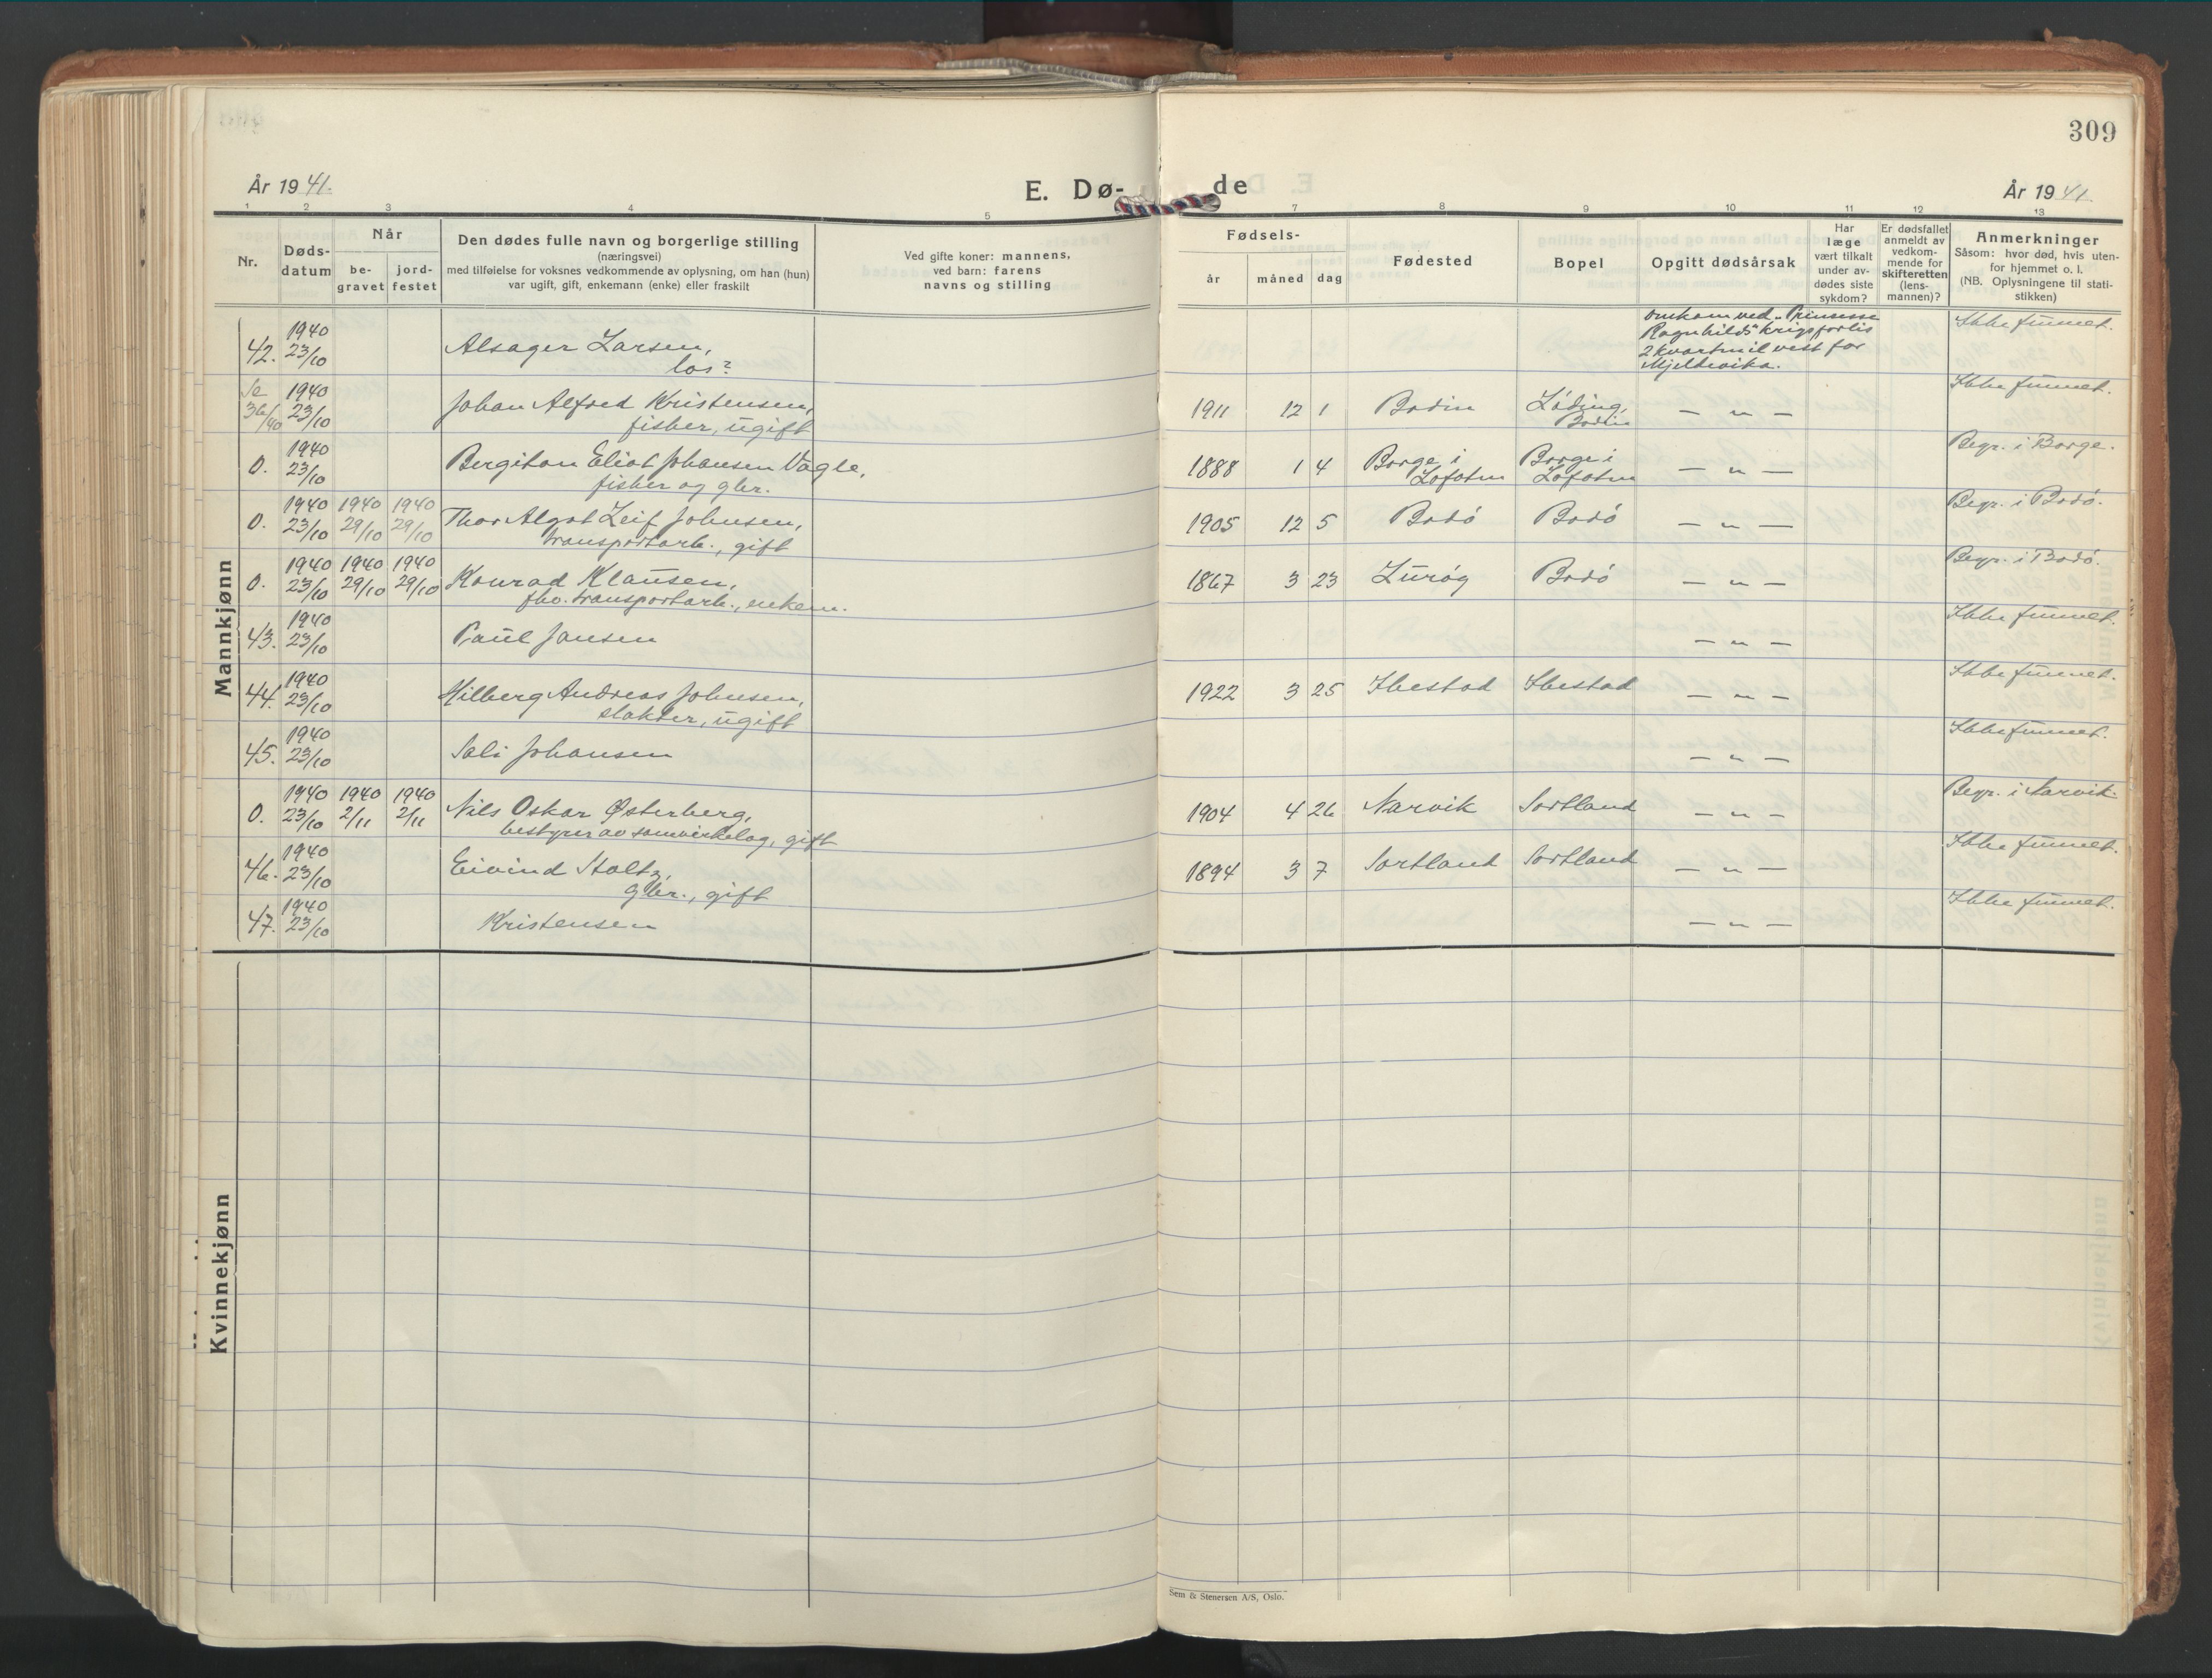 309
År 1941.
E. Dø-
de
År 1941.
1 2 3 4 5 7 8 9 10 11 12 13
Nr.
Døds-
datum
Når
be-
gravet
jord-
festet
Den dødes fulle navn og borgerlige stilling
(næringsvei)
med tilføielse for voksnes vedkommende av oplysning, om han (hun)
var ugift, gift, enkemann (enke) eller fraskilt
Ved gifte koner: mannens,
ved barn: farens
navns og stilling
Fødsels-
år måned dag
Fødested
Bopel
Opgitt dødsårsak
Har
læge
vært tilkalt
under av-
dødes siste
sykdom?
Er dødsfallet
anmeldt av
vedkom-
mende for
skifteretten
(lens-
mannen)?
Anmerkninger
Såsom: hvor død, hvis uten-
for hjemmet o. l.
(NB. Oplysningene til stati-
stikken)
Mannkjønn
42. 1940 23/10 Alsager Larsen,
los?
omkom ved "Prinsesse
Ragnhilds" krigsforlis
2 kvartmil vest for
Mjeldevika.
Ikke funnet.
Se 36/40 1940 23/10 Johan Alfred Kristensen,
fisker, ugift
1911 12 1 Bodin Løding, Bodin — „ — Ikke funnet.
0. 1940 23/10 Bergiton Eliot Johansen Vagle,
fisker og gbr.
1888 1 4 Borge i Lofoten Borge i Lofoten — „ — Begr. i Borge.
0. 1940 23/10 1940 29/10 1940 29/10 Thor Algot Leif Johnsen,
transportarb., gift
1905 12 5 Bodø Bodø — „ — Begr. i Bodø.
0. 1940 23/10 1940 29/10 1940 29/10 Konrad Klausen,
fhv. transportarb., enkem.
1867 3 23 Lurøy Bodø — „ — Begr. i Bodø.
43. 1940 23/10 Paul Jansen — „ — Ikke funnet.
44. 1940 23/10 Hilberg Andreas Johnsen,
slakter, ugift
1922 3 25 Ibestad Ibestad — „ — Ikke funnet.
45. 1940 23/10 Sali Johansen — „ — Ikke funnet.
0. 1940 23/10 1940 2/11 1940 2/11 Nils Oskar Østerberg,
bestyrer av samvirkelag, gift
1904 4 26 Narvik Sortland — „ — Begr. i Narvik.
46. 1940 23/10 Eivind Stoltz,
gbr., gift
1894 3 7 Sortland Sortland — „ — Ikke funnet.
47. 1940 23/10 Kristensen — „ — Ikke funnet.
Kvinnekjønn
Sem & Stenersen A/S, Oslo.